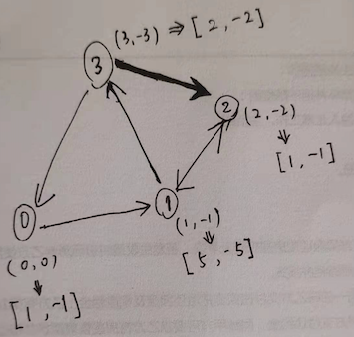 (3,-3) ⇒ [2,-2]
3
2
(2,-2)
⇓
[1,-1]
1
(1,-1)
⇓
[5,-5]
0
(0,0)
⇓
[1,-1]